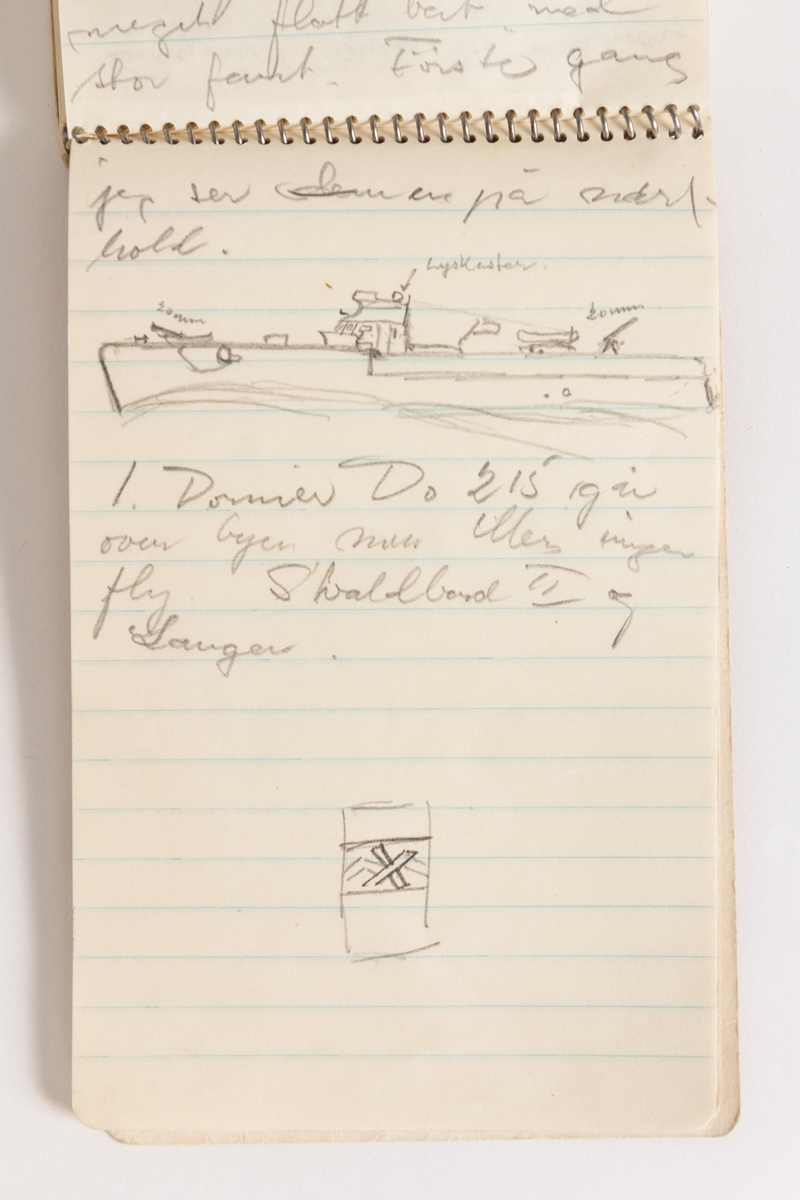 meget flott båt med
stor fart. Første gang
jeg ser en på nært
hold.
Lyskaster.
20mm
20mm
1. Dornier Do 215 igår
over byen men ellers ingen
fly. Svaldbard II og
Langer.